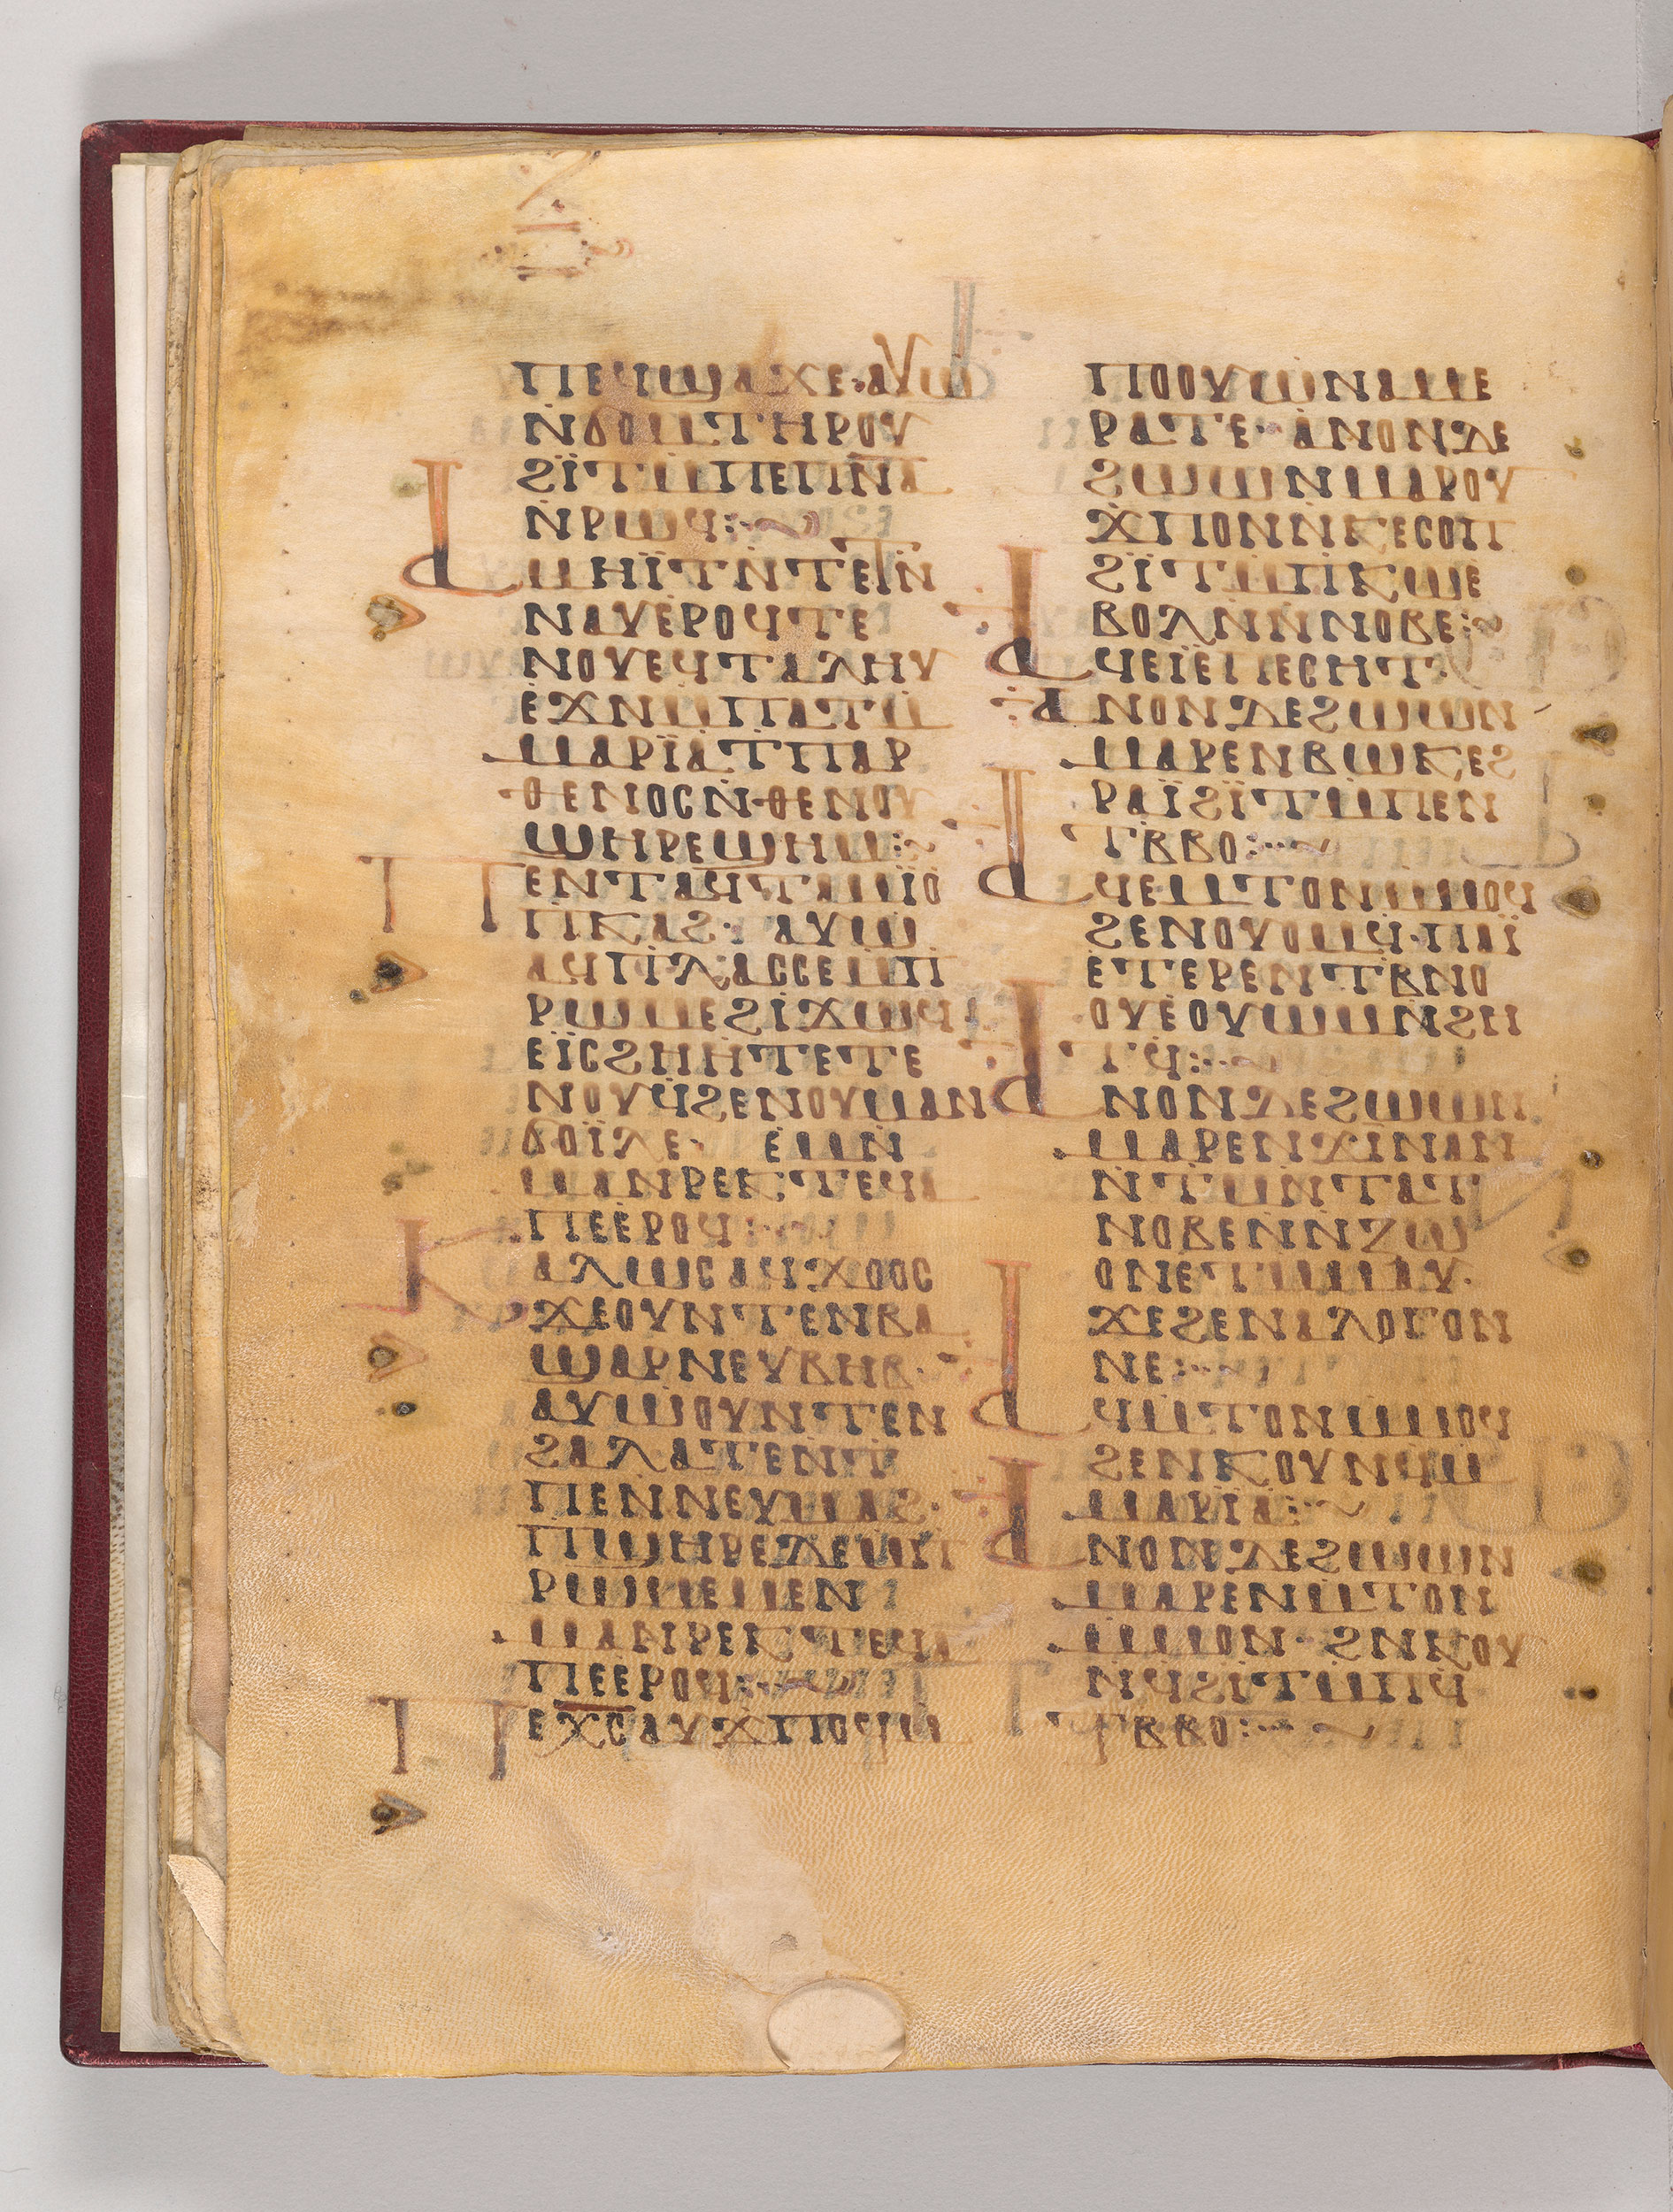 ⲡⲉϥϣⲁϫⲉ· ⲁⲩⲱ
ⲛ̇ϭⲟⲙⲧⲏⲣⲟⲩ
ϩⲓ̈ⲧⲙ̇ⲡⲉⲡⲛ̅ⲁ̅
ⲛ̇ⲣⲱϥ:·~
ⲁⲙⲏⲓ̈ⲧⲛ̇ⲧⲉⲧⲛ̇
ⲛⲁⲩⲉ̇ⲣⲟϥⲧⲉ
ⲛⲟⲩⲉϥⲧⲁⲗⲏⲩ
ⲉ̇ϫⲛⲙ̇ⲡⲁⲧⲙ̇
ⲙⲁⲣⲓ̈ⲁⲧⲡⲁⲣ
ⲑⲉⲛⲟⲥⲛ̇ⲑⲉⲛⲟⲩ
ϣⲏⲣⲉϣⲏⲙ:~
ⲡⲉⲛⲧⲁϥⲧⲁⲙⲓ̈ⲟ
ⲡⲕⲁϩ· ⲁⲩⲱ
ⲁϥⲡⲗⲁⲥⲥⲉⲙ̇ⲡ
ⲣⲱⲙⲉϩⲓϫⲱϥ:
ⲉⲓ̈ⲥϩⲏⲏⲧⲉⲧⲉ
ⲛⲟⲩϥϩⲉⲛⲟⲩⲙⲁⲛ
ϭⲟⲓ̈ⲗⲉ· ⲉ̇ⲙⲛ̇
ⲙⲁⲛⲣⲉⲕⲧⲉϥⲁ
ⲡⲉⲉ̇ⲣⲟϥ:·~
ⲕⲁⲗⲱⲥⲁϥϫⲟⲟⲥ
ϫⲉⲟⲩⲛⲧⲉⲛⲃⲁ
ϣⲁⲣⲛⲉⲩⲃⲏⲃ·
ⲁⲩⲱⲟⲩⲛⲧⲉⲛ
ϩⲁⲗⲁⲧⲉⲛⲧ̇
ⲡⲉⲛⲛⲉⲩⲙⲁϩ·
ⲡϣⲏⲣⲉⲇⲉⲙ̇ⲡ
ⲣⲱⲙⲉⲙⲉⲛ
ⲙⲁⲛⲣⲉⲕⲧⲉϥⲁ
ⲡⲉⲉ̇ⲣⲟϥ:·~
ⲡⲉⲭ̅ⲥ̅ⲁⲩϫⲡⲟϥⲙ
ⲡⲟⲟⲩⲱⲛⲁⲙⲉ
ⲣⲁⲧⲉ· ⲁⲛⲟⲛⲇⲉ
ϩⲱⲱⲛⲙⲁⲣⲟⲩ
ϫⲡⲟⲛⲛ̇ⲕⲉⲥⲟⲡ
ϩⲓ̈ⲧⲙ̇ⲡⲕⲱⲉ
ⲃⲟⲗⲛ̇ⲛ̇ⲛⲟⲃⲉ:~
ⲁϥⲉⲓ̈ⲉⲡⲉⲥⲏⲧ·
ⲁⲛⲟⲛⲇⲉϩⲱⲱⲛ
ⲙⲁⲣⲉⲛⲃⲱⲕⲉϩ
ⲣⲁⲓ̈ϩⲓ̈ⲧⲙ̇ⲡⲉⲛ
ⲧⲃⲃⲟ:·~
ⲁϥⲉⲙⲧⲟⲛⲙ̇ⲙⲟϥ
ϩⲉⲛⲟⲩⲟⲙϥ· ⲡⲁⲓ̈
ⲉ̇ⲧⲉⲣⲉⲛⲧⲃⲛⲟ
ⲟⲩⲉ̇ⲟⲩⲱⲙⲛ̇ϩⲏ
ⲧϥ̇:·~
ⲁⲛⲟⲛⲇⲉϩⲱⲱⲛ
ⲙⲁⲣⲉⲛϫⲓⲛⲁⲛ
ⲛ̇ⲧⲙⲛ̇ⲧⲁⲧ
ⲛⲟⲃⲉⲛⲛⲍⲱ
ⲟⲛⲉⲧⲙ̇ⲙⲁⲩ·
ϫⲉϩⲉⲛⲁⲗⲟⲅⲟⲛ
ⲛⲉ:·~
ⲁϥⲙⲧⲟⲛⲙ̇ⲙⲟϥ
ϩⲉⲛⲕⲟⲩⲛϥⲙ̇
ⲙⲁⲣⲓ̈ⲁ:·~
ⲁⲛⲟⲛⲇⲉϩⲱⲱⲛ
ⲙⲁⲣⲉⲛⲙ̇ⲧⲟⲛ
ⲙ̇ⲙⲟⲛ· ϩⲛⲕⲟⲩ
ⲛ̇ϥϩⲓⲧⲙ̇ⲡϥ̇
ⲧⲃⲃⲟ:·~